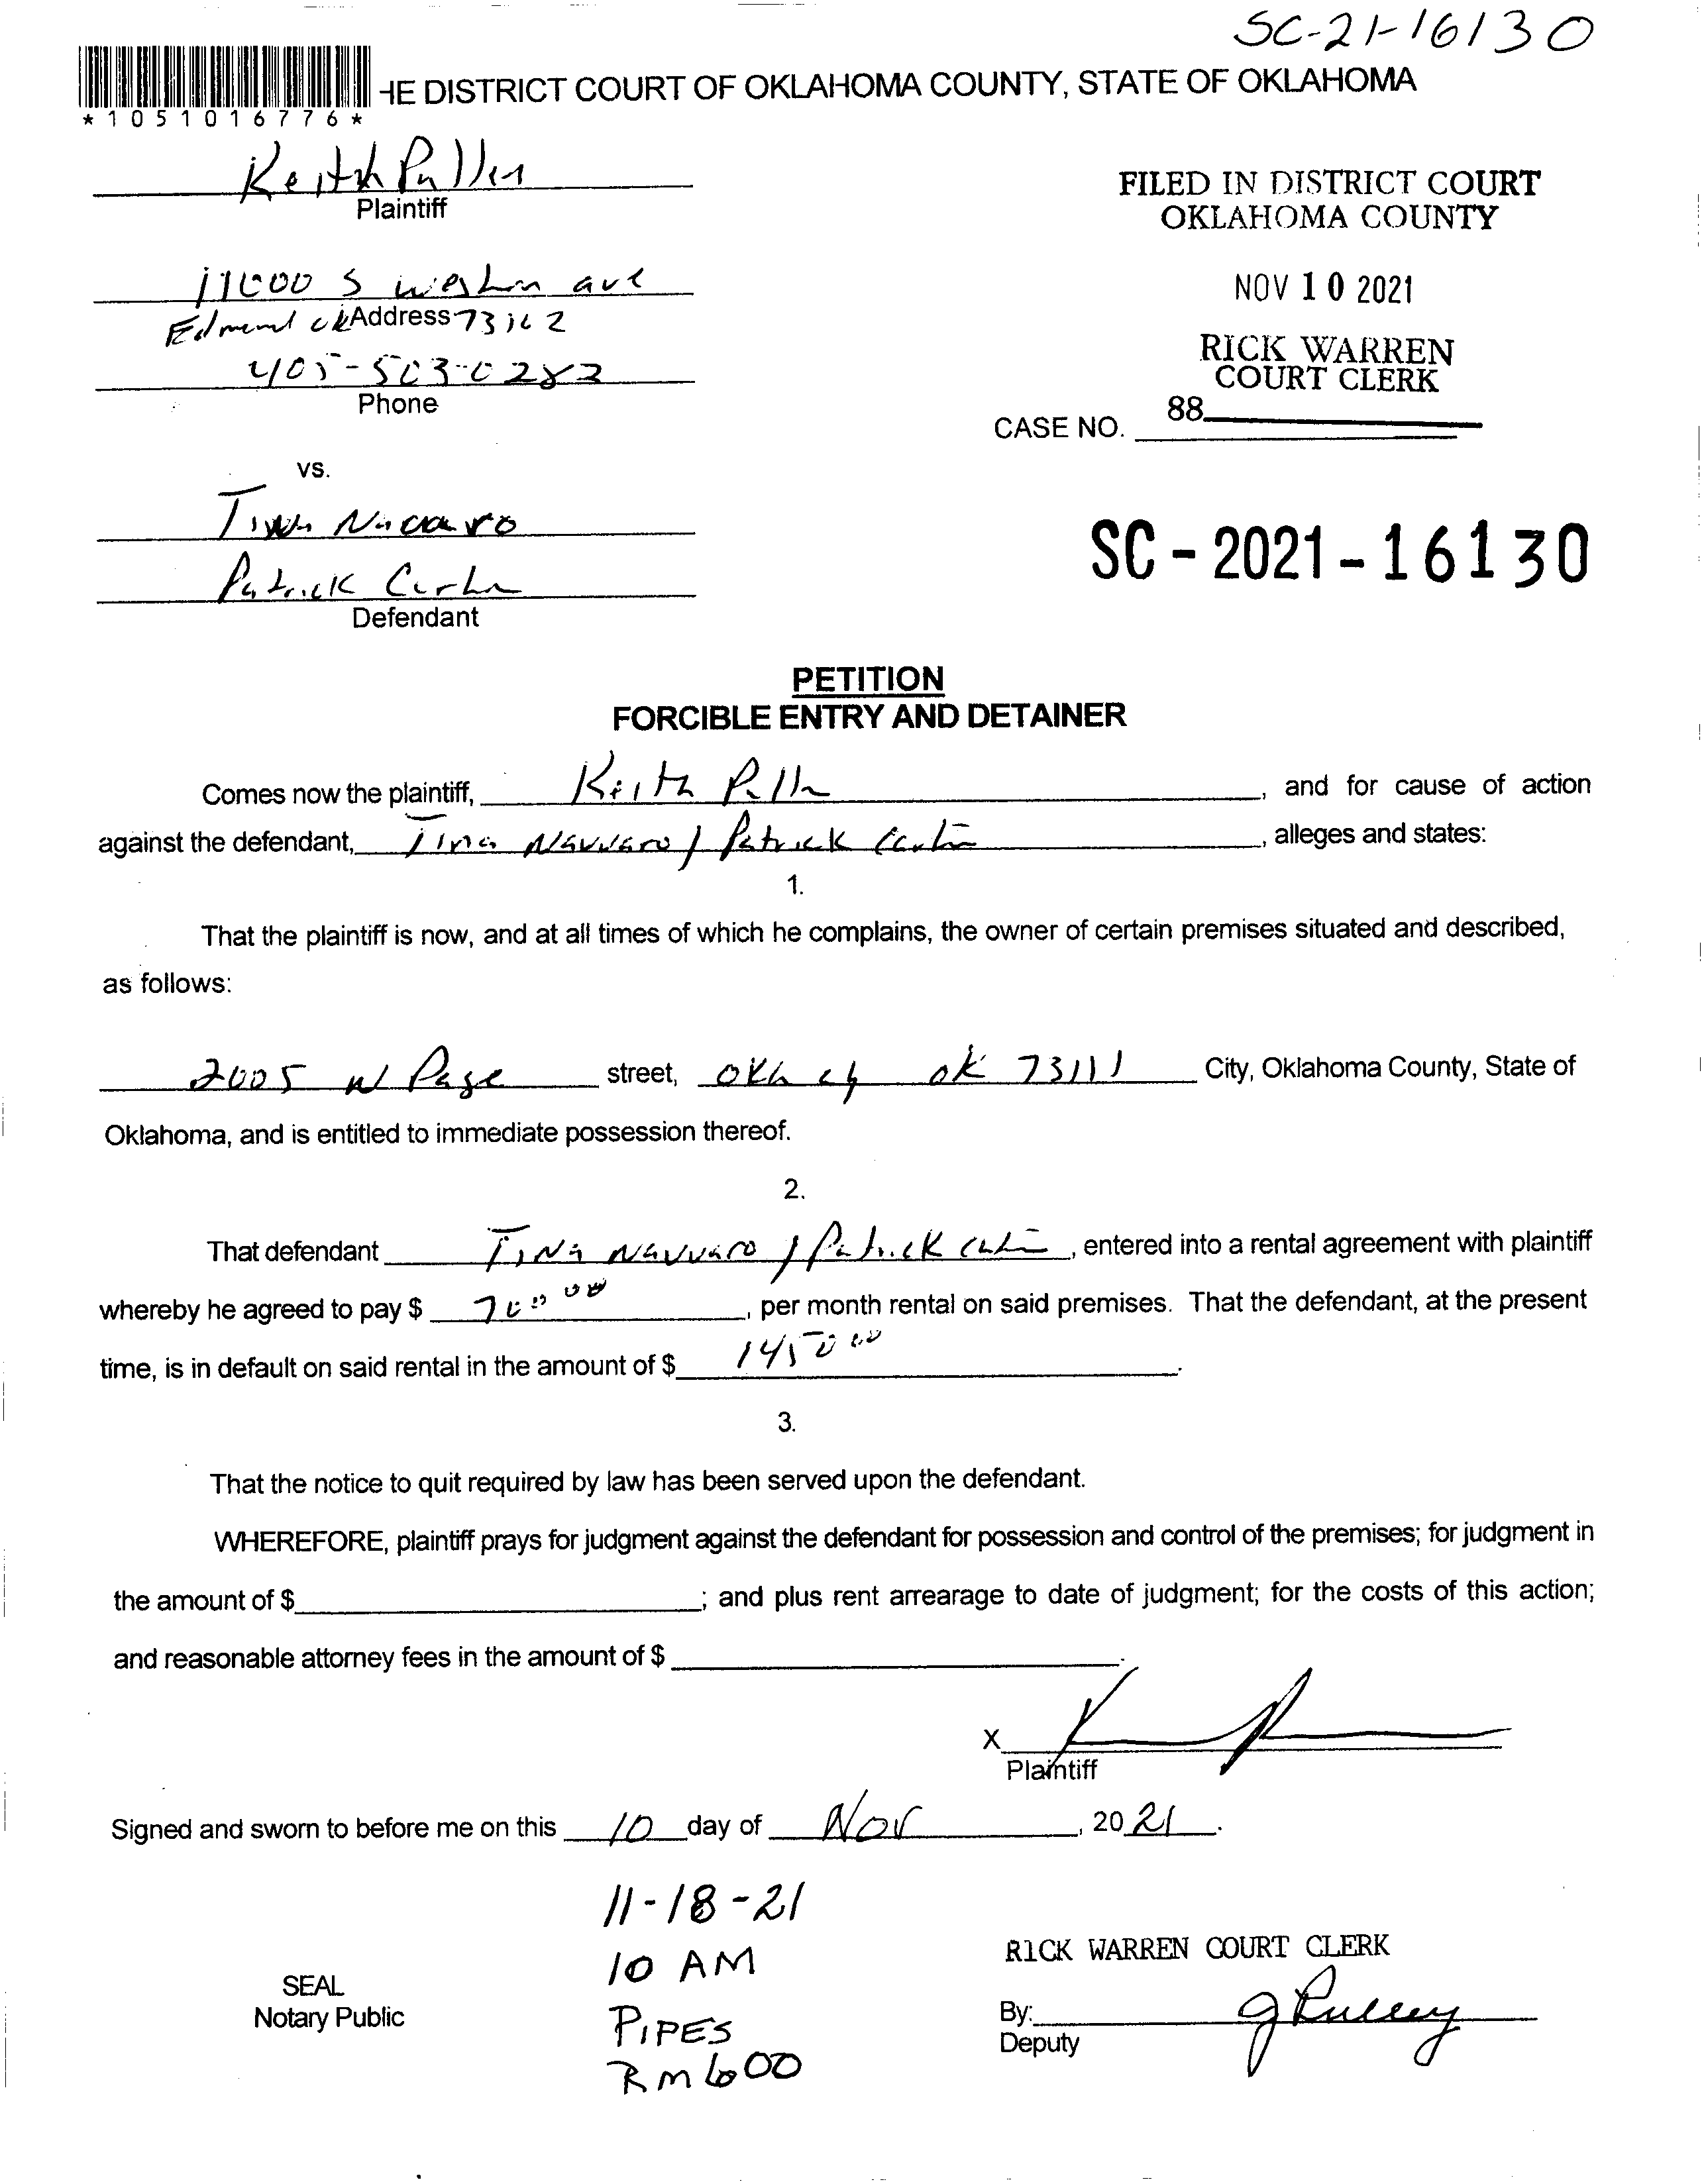 SC-21-16130
HE DISTRICT COURT OF OKLAHOMA COUNTY, STATE OF OKLAHOMA
*1051016776*
Keith
Plaintiff
FILED IN DISTRICT COURT
OKLAHOMA COUNTY
S ave
Address
NOV 10 2021
RICK WARREN
COURT CLERK
405-503-0282
Phone
88
CASE NO.
vs.
Patrick
Defendant
SC-2021-16130
PETITION
FORCIBLE ENTRY AND DETAINER
Comes now the plaintiff, Keith , and for cause of action
against the defendant, Tina Navvaro / Patrick , alleges and states:
1.
That the plaintiff is now, and at all times of which he complains, the owner of certain premises situated and described,
as follows:
2005 Page street, ok 73111 City, Oklahoma County, State of
Oklahoma, and is entitled to immediate possession thereof.
2.
That defendant Tina Navvaro / Patrick , entered into a rental agreement with plaintiff
whereby he agreed to pay $ 700 00 , per month rental on said premises. That the defendant, at the present
time, is in default on said rental in the amount of $ 1450 00 .
3.
That the notice to quit required by law has been served upon the defendant.
WHEREFORE, plaintiff prays for judgment against the defendant for possession and control of the premises; for judgment in
the amount of $ ; and plus rent arrearage to date of judgment; for the costs of this action;
and reasonable attorney fees in the amount of $ .
X
Plaintiff
Signed and sworn to before me on this 10 day of Nov , 20 21 .
11-18-21
10 AM
PIPES
Rm 600
SEAL
Notary Public
RICK WARREN COURT CLERK
By:
Deputy